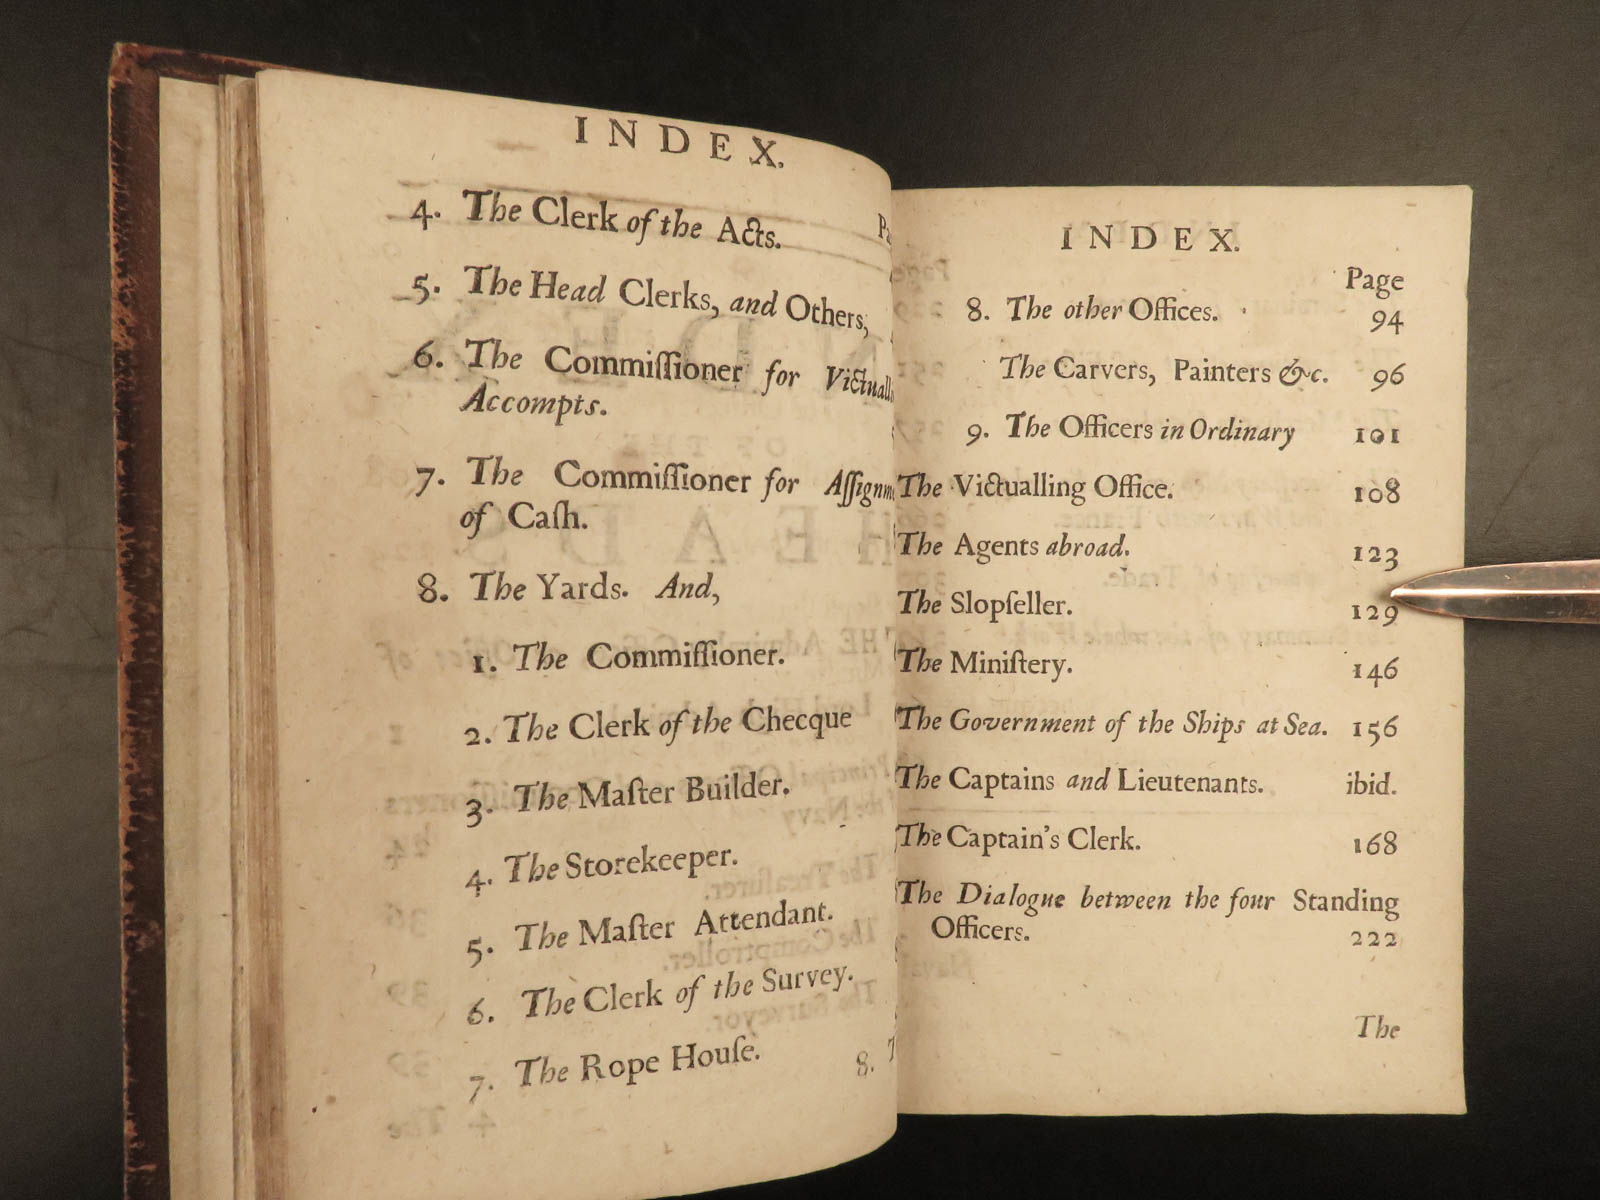 INDEX.
4. The Clerk of the Acts.
5. The Head Clerks, and Others,
6. The Commiſſioner for Victuall
Accompts.
7. The Commiſſioner for Aſſignm
of Caſh.
8. The Yards. And,
1. The Commiſſioner.
2. The Clerk of the Checque
3. The Maſter Builder.
4. The Storekeeper.
5. The Maſter Attendant.
6. The Clerk of the Survey.
7. The Rope Houſe.
8.
INDEX.
Page
8. The other Offices. 94
The Carvers, Painters &c. 96
9. The Officers in Ordinary 101
The Victualling Office. 108
The Agents abroad. 123
The Slopſeller. 129
The Miniſtery. 146
The Government of the Ships at Sea. 156
The Captains and Lieutenants. ibid.
The Captain's Clerk. 168
The Dialogue between the four Standing
Officers. 222
The